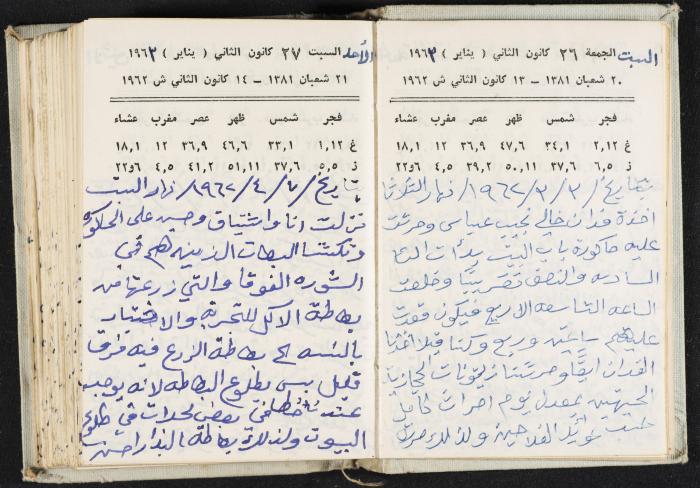 السبت
الجمعة ٢٦ كانون الثاني ( يناير ) ١٩٦٣
٢٠ شعبان ١٣٨١ — ١٣ كانون الثاني ش ١٩٦٢
فجر شمس ظهر عصر مغرب عشاء
غ ١,١٢ ٣٤,١ ٤٧,٦ ٣٦,٩ ١٢ ١٨,١
ز ٦,٥ ٣٧,٦ ٥٠,١١ ٣٩,٢ ٤,٥ ٢٢و٦
بتاريخ / ٣ / ٣ / ١٩٦٢ / نهار الثلاثا
اخذة فدان خالي نجيب عباسي وحرثت
عليه حاكورة باب البيت بدأت الساعة
السادسه والنصف تقريبًا وخلصت
الساعه التاسعه الا ربع فيكون قعدت
عليهم ساعتين وربع وكنا قبلا اخذنا
الفدان ايضًا وحرثنا زيتونات الحجازية
الجهتين بمعدل يوم احراث كامل
الفلاحين ولذلك
الأحد
السبت ٢٧ كانون الثاني ( يناير ) ١٩٦٣
٢١ شعبان ١٣٨١ — ١٤ كانون الثاني ش ١٩٦٢
فجر شمس ظهر عصر مغرب عشاء
غ ١,١٢ ٣٣,١ ٤٦,٦ ٣٦,٩ ١٢ ١٨,١
ز ٥,٥ ٣٧,٦ ٥١,١١ ٤١,٢ ٤,٥ ٢٢و٦
بتاريخ / ٧ / ٤ / ١٩٦٢ / نهار السبت
نزلت انا واشتياق وحسن على الحاكوره
ونكشنا البطاطا الزينه هم في
الشوره الفوقا والتي زرعتها من
بطاطة الاكل للتجربه والاختبار
بالنسبه الى بطاطة الزرع فيه فرق
قليل بس بطلوع البطاطه لانه يوجد
عند بعض لحدات في طلوع
البيوت ولذلك بطاطة البذار احسن